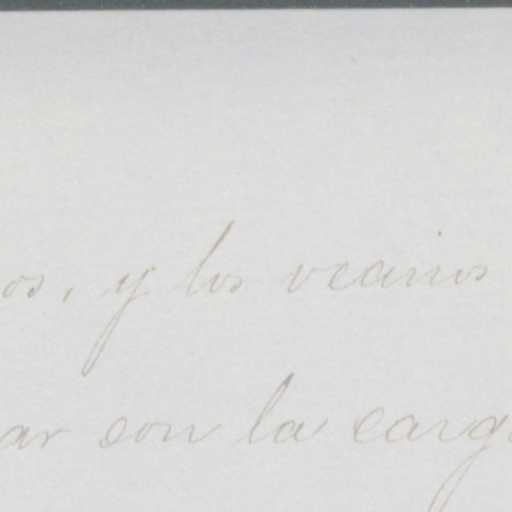 os, y los vicarios
ar con la carg